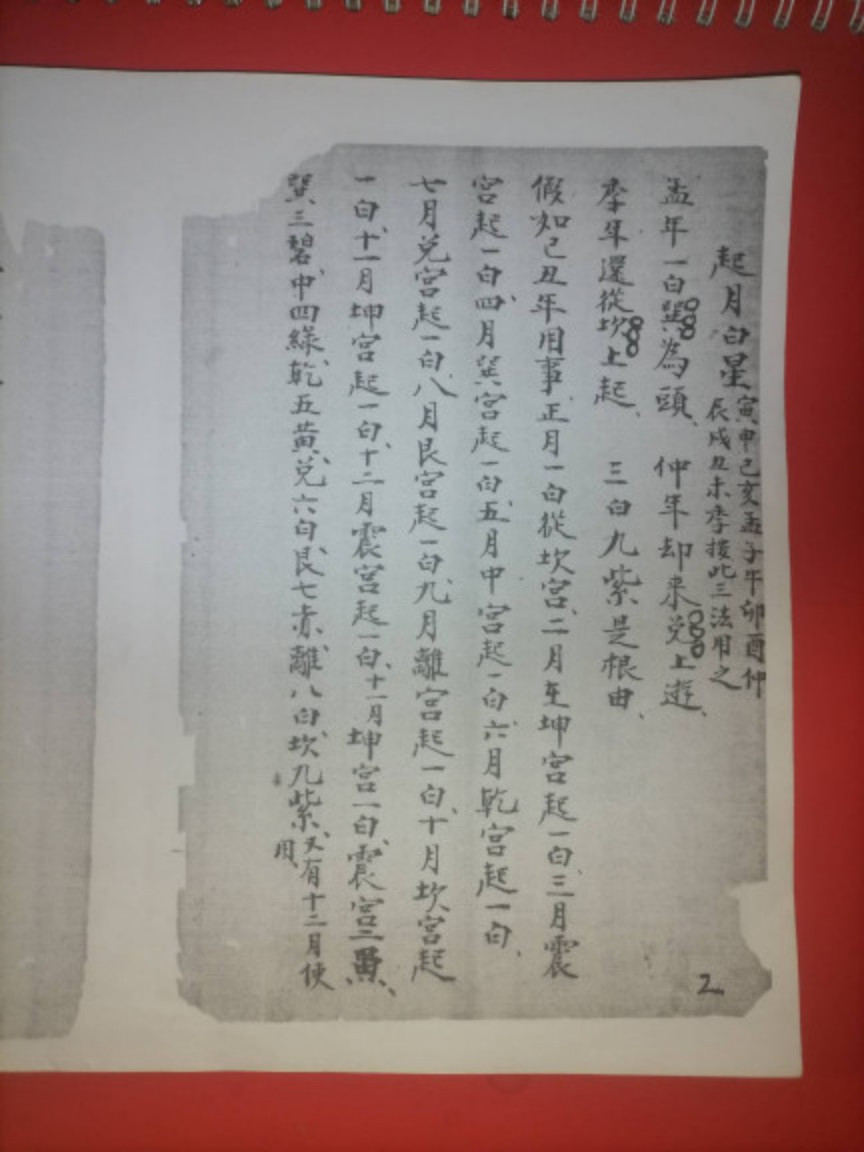 起月白星
寅申己亥孟子午卯酉仲
辰戌丑未季接此三法用之
孟年一白巽為頭、仲年却来兌上遊、
季年還從坎上起、三白九紫是根由、
假如己丑年用事、正月一白從坎宮、二月在坤宮起一白、三月震
宮起一白、四月巽宮起一白、五月中宮起一白、六月乾宮起一白、
七月兌宮起一白、八月艮宮起一白、九月離宮起一白、十月坎宮起
一白、十一月坤宮起一白、十二月震宮起一白、十一月坤宮一白、震宮二黑、
巽三碧、中四綠、乾五黄、兌六白、艮七赤、離八白、坎九紫、又有十二月使
用、
2